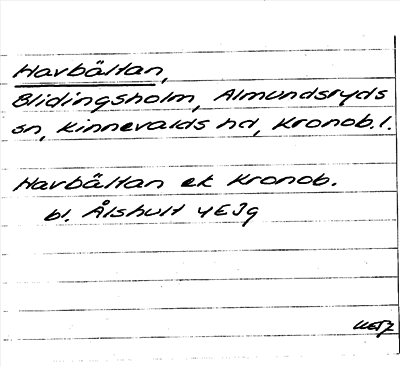 Havbältan,
Blidingsholm, Almundsryds
sn, Kinnevalds hd, Kronob. l.
Havbältan ek Kronob.
bl. Ålshult 4E Jg